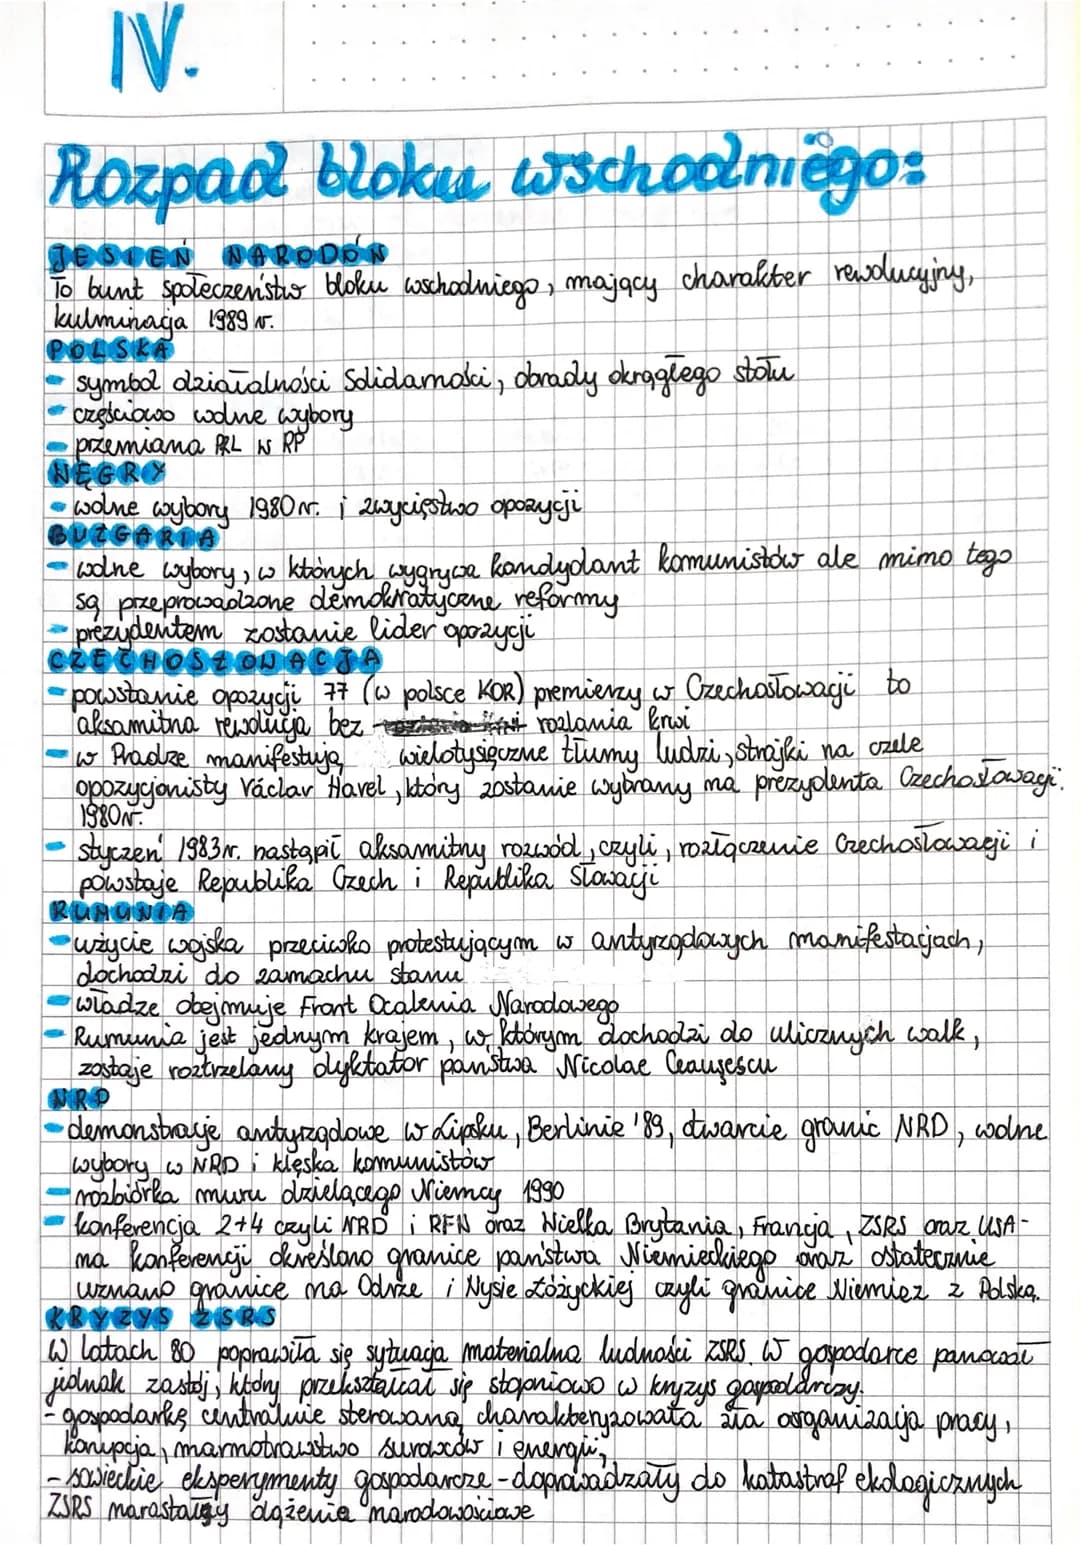 IV.
Rozpad bloku wschodniego:
JESIEŃ NARODÓW
To bunt społeczeństw bloku wschodniego, mający charakter rewolucyjny,
kulminacja 1989 r.
POLSKA
- symbol działalności Solidarności, obrady okrągłego stołu
- częściowo wolne wybory
- przemiana PRL W RP
WĘGRY
- wolne wybory 1980r. i zwycięstwo opozycji
BUŁGARIA
- wolne wybory, w których wygrywa kandydant komunistów ale mimo tego
są przeprowadzone demokratyczne reformy
- prezydentem zostanie lider opozycji
CZECHOSŁOWACJA
- powstanie opozycji 77 (w polsce KOR) premierzy w Czechosłowacji to
aksamitna rewolucja bez rozlania krwi
- w Pradze manifestują wielotysięczne tłumy ludzi, strajki na czele
opozycjonisty Václav Havel, który zostanie wybrany na prezydenta Czechosłowacji.
1980r.
- styczeń 1983r. nastąpił aksamitny rozwód, czyli, rozłączenie Czechosłowacji i
powstaje Republika Czech i Republika Słowacji
RUMUNIA
- użycie wojska przeciwko protestującym w antyrządowych manifestacjach,
dochodzi do zamachu stanu
- władze obejmuje Front Ocalenia Narodowego
- Rumunia jest jednym krajem, w którym dochodzi do ulicznych walk,
zostaje roztrzelany dyktator państwa Nicolae Ceauşescu
NRD
- demonstracje antyrządowe w Lipsku, Berlinie '89, otwarcie granic NRD, wolne
wybory w NRD i klęska komunistów
- rozbiórka muru dzielącego Niemcy 1990
- konferencja 2+4 czyli NRD i RFN oraz Wielka Brytania, Francja, ZSRS oraz USA-
na konferencji określono granice państwa Niemieckiego oraz ostatecznie
uznano granice na Odrze i Nysie Łóżyckiej czyli granice Niemiec z Polską.
KRYZYS ZSRS
W latach 80 poprawiła się sytuacja materialna ludności ZSRS. W gospodarce panował
jednak zastój, który przekształcał się stopniowo w kryzys gospodarczy.
- gospodarkę centralnie sterowaną charakteryzowała zła organizacja pracy,
korupcja, marnotrawstwo surowców i energii,
- sowieckie eksperymenty gospodarcze - doprowadzały do katastrof ekologicznych
ZSRS narastały dążenie narodowościowe